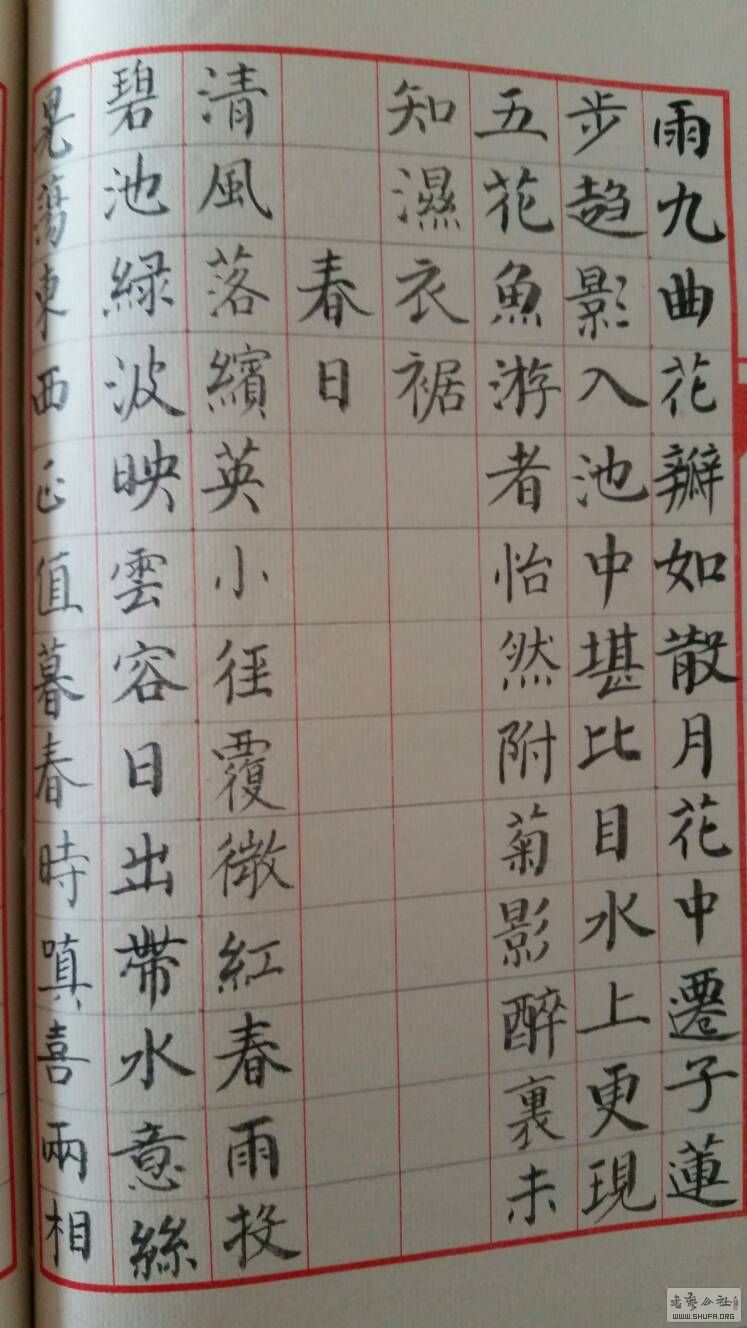 雨九曲花瓣如散月花中遷子蓮
步趋影入池中堪比目水上更現
五花魚游者怡然附菊影醉裏未
知濕衣裾
春日
清風落繽英小徑覆微紅春雨投
碧池緑波映雲容日出帶水意絲
晃蕩東西正值暮春時嗔喜兩相
WWW.SHUFA.ORG